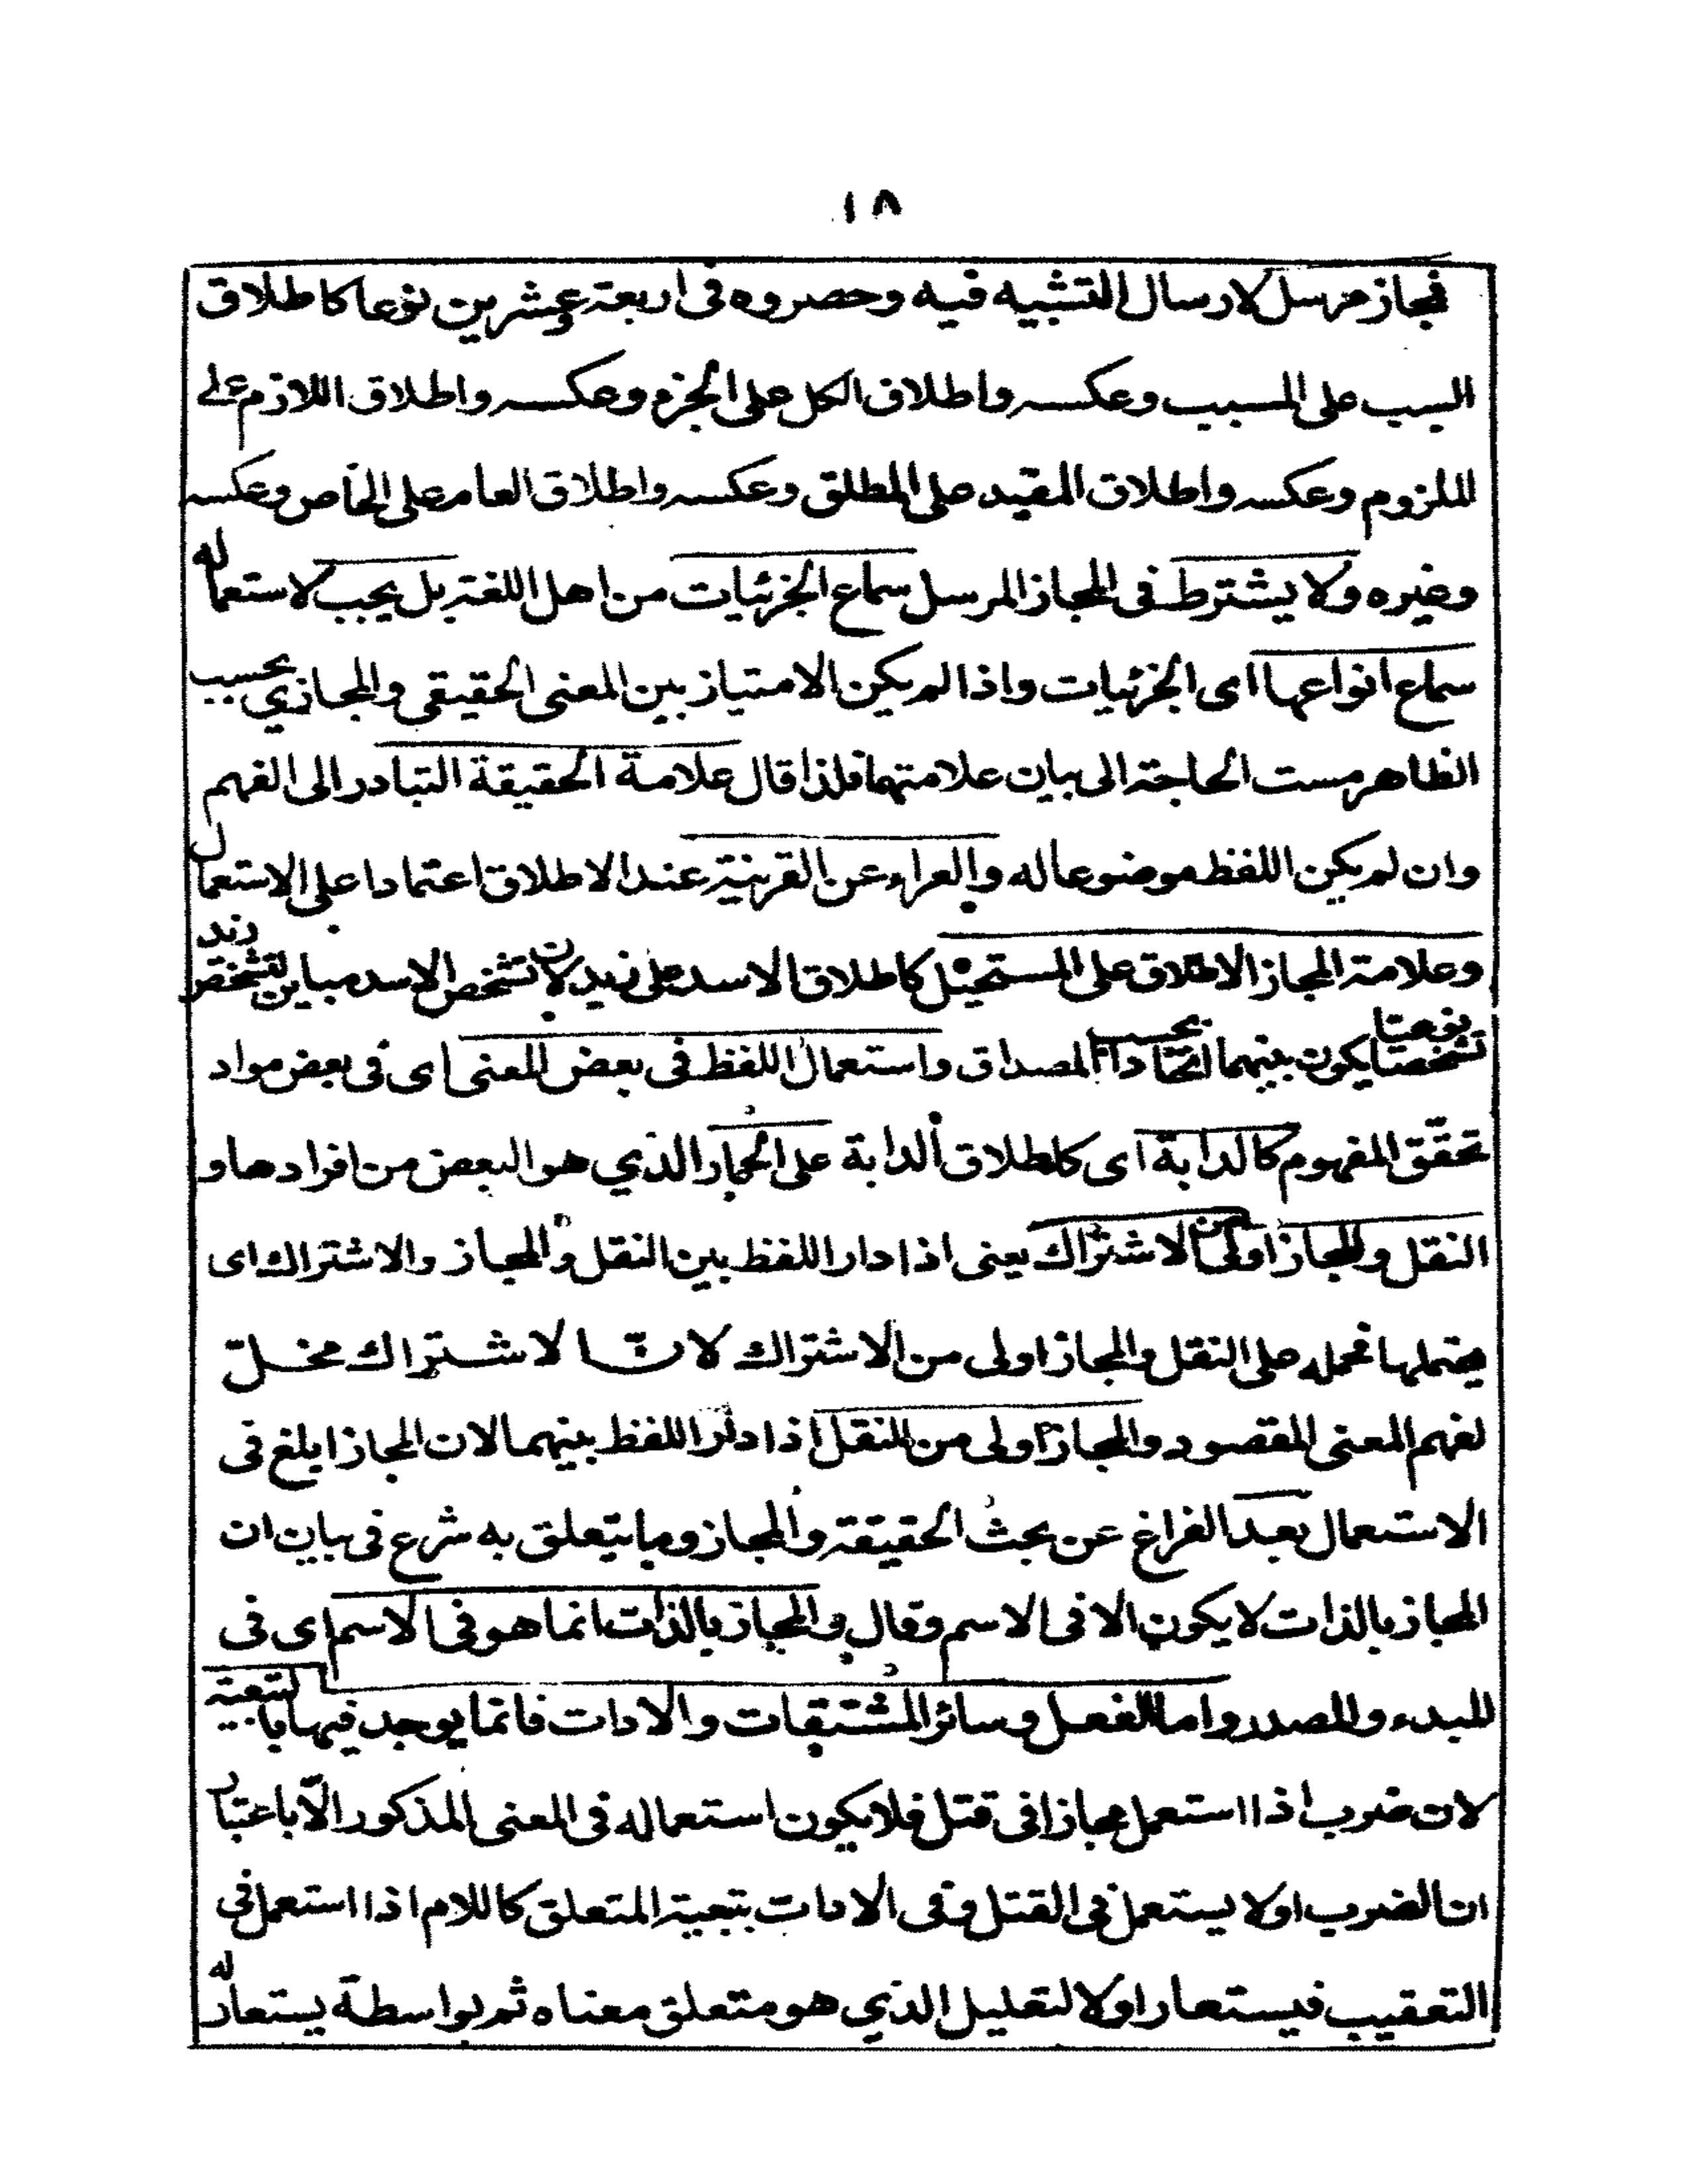 ١٨
فمجاز مرسل لارسال التشبيه فيه وحصروه فى اربعة وعشرين نوعا كاطلاق
السبب على المسبب وعكسه واطلاق الكل على الجزء وعكسه واطلاق اللازم على
الملزوم وعكسه واطلاق المقيد على المطلق وعكسه واطلاق العام على الخاص وعكسه
وغيره ولا يشترط فى المجاز المرسل سماع الجزئيات من اهل اللغة بل يجب لاستعماله
سماع انواعها اى الجزئيات واذا لم يكن الامتياز بين المعنى الحقيقى والمجازي بحسب
الظاهر مست الحاجة الى بيان علامتهما فلذا قال علامة الحقيقة التبادر الى الفهم
وان لم يكن اللفظ موضوعا له والعراء عن القرينة عند الاطلاق اعتمادا على الاستعمال
وعلامة المجاز الاطلاق على المستحيل كاطلاق الاسد على زيد لان تشخص الاسد مباين لتشخص زيد
تشخصا نوعيا يكون بينهما اتحادا بحسب المصداق واستعمال اللفظ فى بعض المعنى اى فى بعض مواد
تحقق المفهوم كالدابة اى كاطلاق الدابة على الحمار الذي هو البعض من افرادها و
النقل والمجاز اولى من الاشتراك يعنى اذا دار اللفظ بين النقل والمجاز والاشتراك اى
يحتملها فحمله على النقل والمجاز اولى من الاشتراك لان الاشتراك مخلّ
لفهم المعنى المقصود والمجاز اولى من النقل اذا دار اللفظ بينهما لان المجاز ابلغ فى
الاستعمال بعد الفراغ عن بحث الحقيقة والمجاز وما يتعلق به شرع فى بيان ان
المجاز بالذات لا يكون الا فى الاسم وقال والمجاز بالذات انما هو فى الاسم اى فى
المبدء والمصدر واما الفعل وسائر المشتقات والادات فانما يوجد فيها بالتبعية
لان ضرب اذا استعمل مجازا فى قتل فلا يكون استعماله فى المعنى المذكور الّا باعتبار
ان الضرب اولا يستعمل فى القتل وفى الادات بتبعية المتعلق كاللام اذا استعمل فى
التعقيب فيستعار اولا لتعليل الذي هو متعلق معناه ثم بواسطة يستعار له